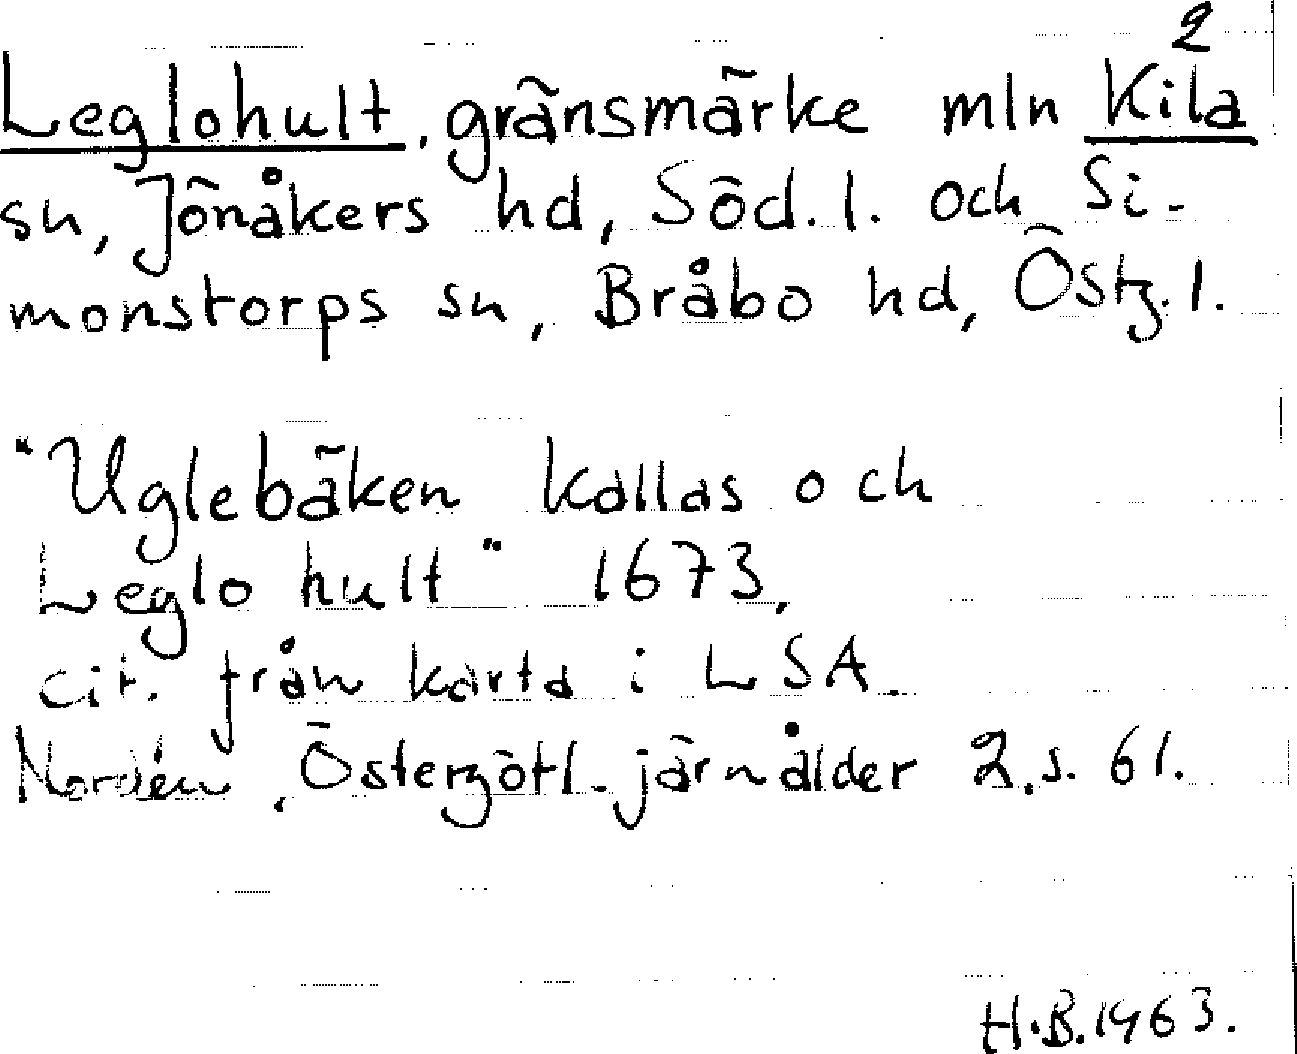 2
Leglohult, gränsmärke mln Kila
sn, Jönåkers hd, Söd. l. och Si-
monstorps sn, Bråbo hd, Östg. l.
"Uglebäken kallas och
Leglo hult" 1673,
cit. från karta i LSA.
Nordén, Östergötl. järnålder 2, s. 61.
H.B. 1963.